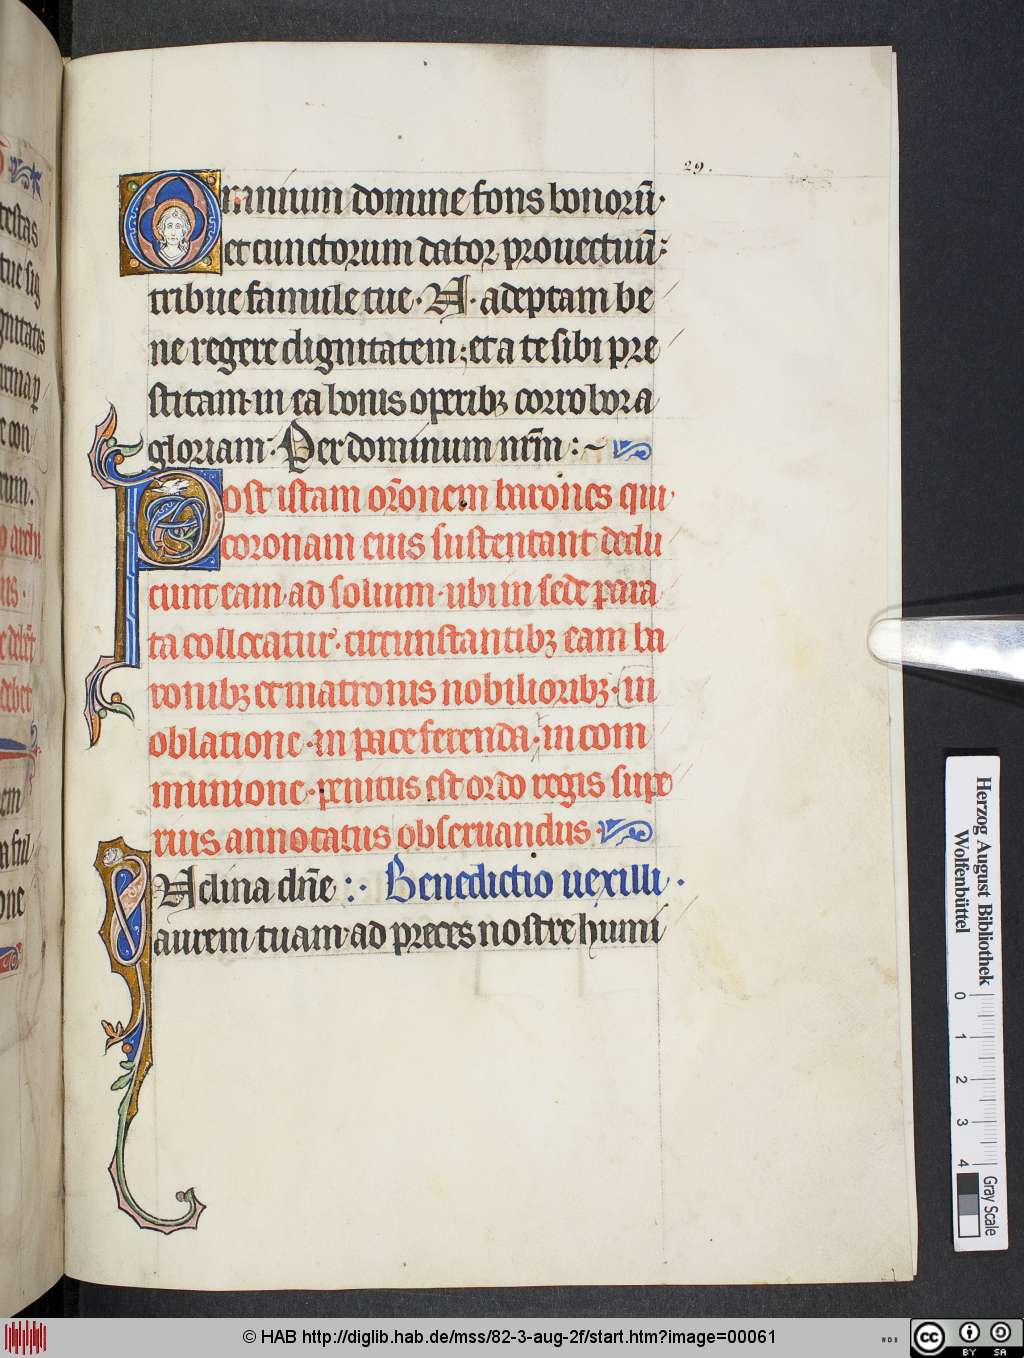 29.
Omnium domine fons bonorū·
et cunctorum dator prouectuū:
tribue famule tue · N · adeptam be
ne regere dignitatem; et a te sibi pre
stitam· in ea bonis operibꝫ corrobora
gloriam· Per dominum nrm̄ : ~
Post istam or̄onem barones qui
coronam eius sustentant dedu
cunt eam ad solium · ubi in sede para
ta collocatur· circumstantibꝫ eam ba
ronibꝫ et matronis nobilioribꝫ · in
oblatione · in pace ferenda · in com
munione · penitus est ordo regis supe
rius annotatus obseruandus ·
INclina dn̄e : · Benedictio uexilli ·
aurem tuam· ad preces nostre humi
Herzog August Bibliothek
Wolfenbüttel
0 1 2 3 4
Gray Scale
© HAB http://diglib.hab.de/mss/82-3-aug-2f/start.htm?image=00061
WDB
cc
BY SA